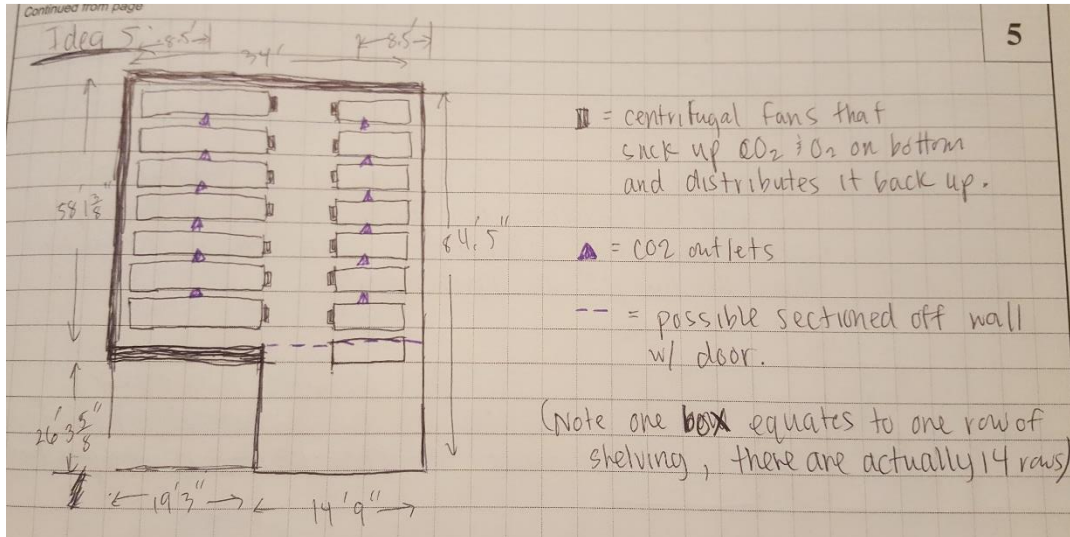 Continued from page
Idea 5:
8.5'
8.5'
34'
5
= centrifugal fans that
suck up CO2 & O2 on bottom
and distributes it back up.
58' 1 3/8"
84', 5"
= CO2 outlets
-- = possible sectioned off wall
w/ door.
26' 3 5/8"
(Note one box equates to one row of
shelving, there are actually 14 rows)
19'3"
14'9"